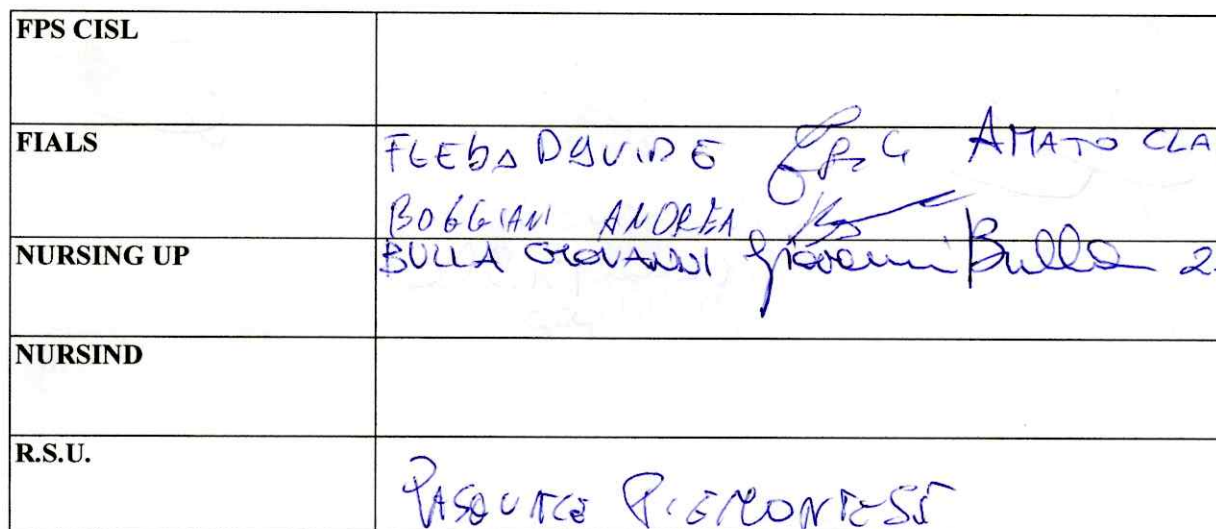 FPS CISL
FIALS FLEBA DAVIDE AMATO CLA
BOGGIANI ANDREA
NURSING UP BULLA GIOVANNI Giovanni Bulla 2
NURSIND
R.S.U.
PASQUALE PIEMONTESI